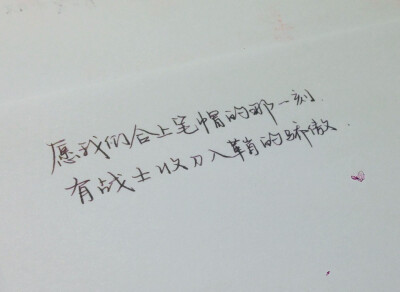 愿我们合上笔帽的那一刻.
有战士收刀入鞘的骄傲.